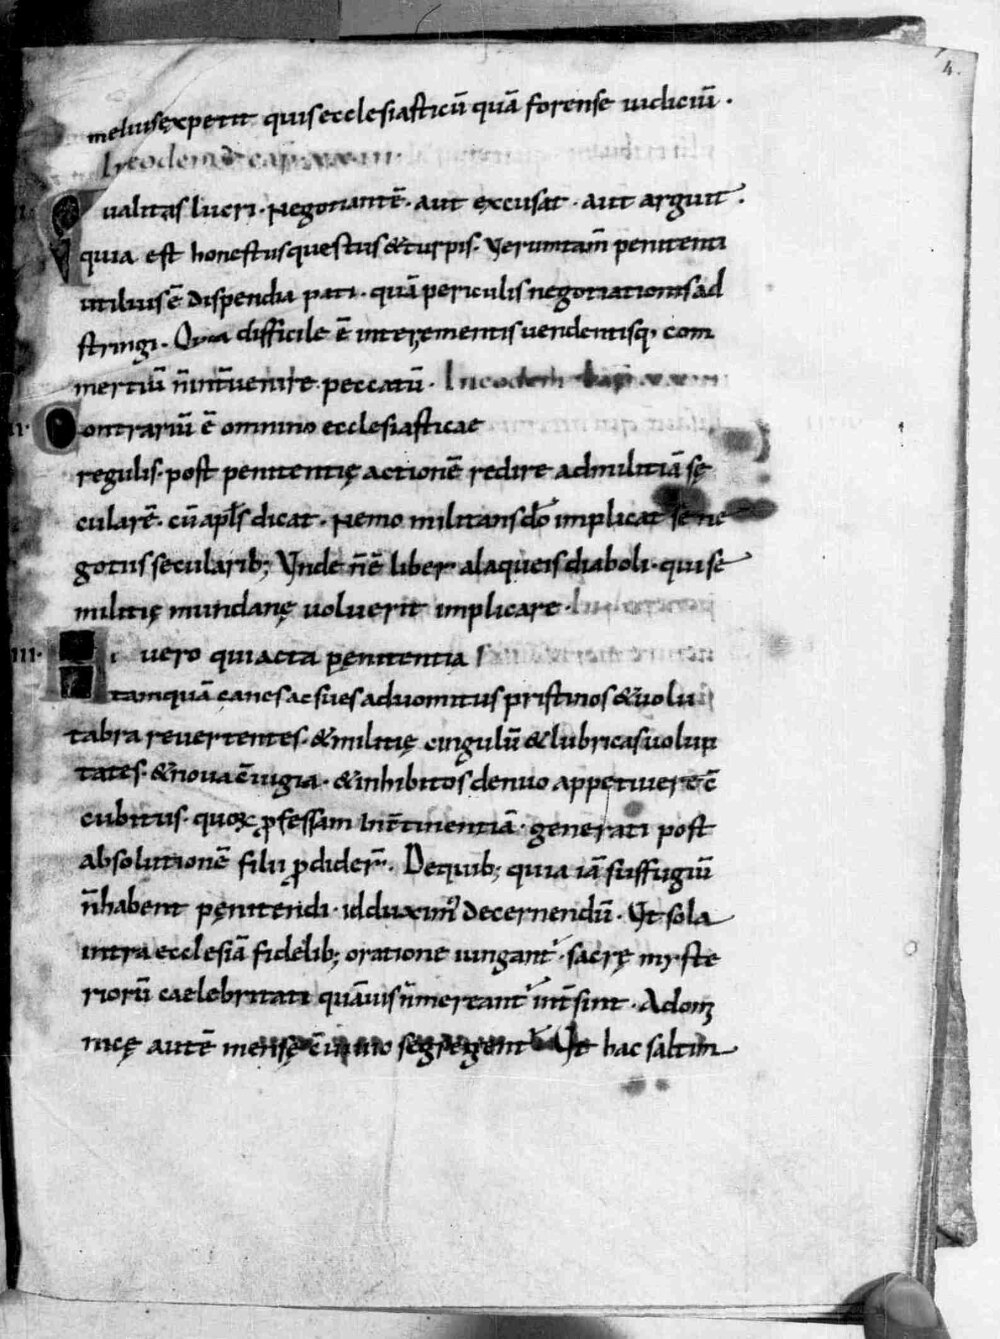 4.
meliusexpetit quisecclesiasticū quā forense iudiciū .
In eodem cap. xxiii.
II. Qualitas lucri . Negotiantē . aut excusat . aut arguit .
quia est honestusquestus & turpis . Verumtam̄ penitenti
utilius ē dispendia pati . quā periculis negotiationis ad
stringi . Quia difficile ē inter ęmentis uendentisq; com
mertiū n̄ int̄uenire peccatū . In eodem cap.
II. Contrariū ē omnino ecclesiasticae
regulis . post penitentię actionē redire admilitiā sę
cularē . cū apl̄s dicat . Nemo militans dō implicat se ne
gotiis secularib; Vnde n̄ ē liber alaqueis diaboli . qui se
militię mundanę uoluerit implicare .
III. Hi uero qui acta pęnitentia
tamquā canes ac sues aduomitus pristinos & uolu
tabra reuertentes . & militię cingulū & lubricas uolup
tates . & noua c̄iugia . & inhibitos denuo appetiuere c̄
cubitus . quoꝝ ꝓfessam inc̄tinentiā . generati post
absolutionē filii ꝓdider̄ . Dequib; quia iā suffugiū
n̄ habent pęnitendi . id duxim' decernendū . Vt sola
intra ecclesiā fidelib; oratione iungant' . sacrę myste
riorū caelebritati quāuis n̄ mereant' int̄sint . A dom̄
nicę autē mensę c̄uiuio segregent' Vt hac saltim